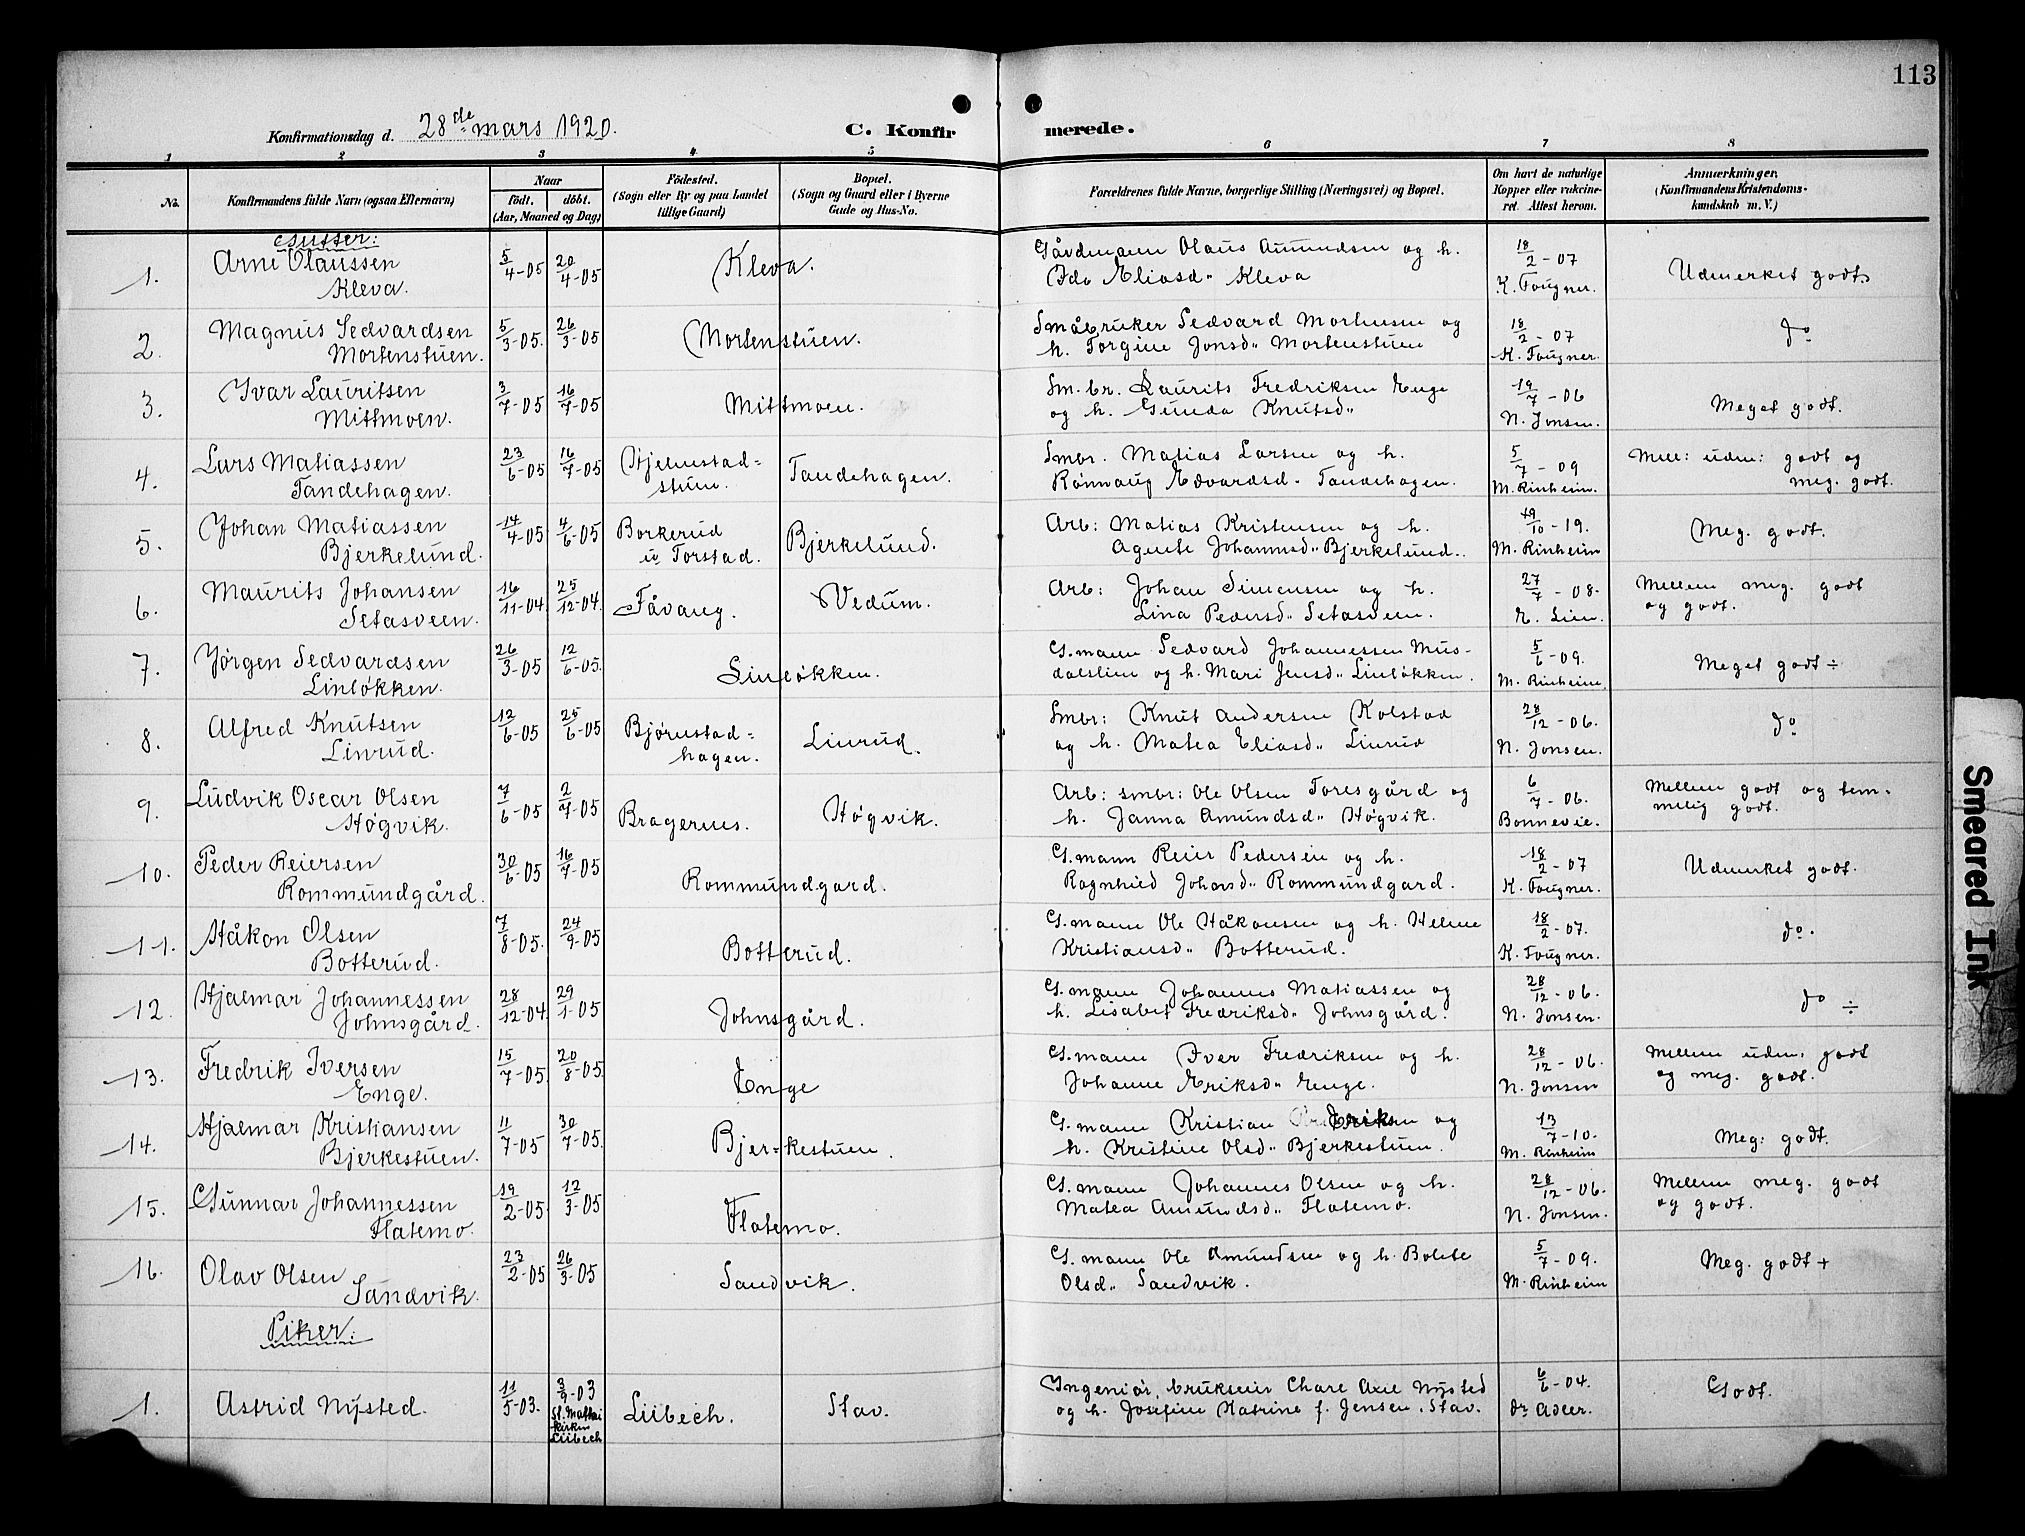 113
Konfirmationsdag d. 28de mars 1920. C. Konfirmerede.
1 2 3 4 5 6 7 8
No. Konfirmandens fulde Navn (ogsaa Efternavn) Naar født. døbt. (Aar, Maaned og Dag) Fødested. (Sogn eller By og paa Landet tillige Gaard) Bopæl. (Sogn og Gaard eller i Byerne Gade og Hus-No. Forældrenes fulde Navne, borgerlige Stilling (Næringsvei) og Bopæl. Om havt de naturlige Kopper eller vakcineret. Attest herom. Anmærkninger. (Konfirmandens Kristendomskundskab m. V.)
Gutter:
1. Arne Olaussen 5/4-05 20/4-05 Kleva. Gårdmann Olaus Amundsen og h. 18/2-07 Udmerket godt.
Kleva. Ida Eliasd" Kleva K. Fougner.
2. Magnus Sedvardsen 5/3-05. 26/3-05 Mortenstuen. Småbruker Sedvard Mortensen og 18/2-07 do
Mortenstuen. h. Torgine Jonsd" Mortenstuen K. Fougner.
3. Ivar Lauritsen 3/7-05 16/7-05 Mittmoen. Sm.br. Laurits Fredriksen Enge 19/7-06 Meget godt.
Mittmoen. og h. Gunda Knutsd" N. Jonsen.
4. Lars Matiassen 23/6-05 16/7-05 Hjelmstad= Tandehagen. Smbr. Matias Larsen og h. 5/7-09 Mell: udm: godt og
Tandehagen. stuen. Rønnaug Edvardsd. Tandehagen. M. Rinheim. meg. godt.
5. Johan Matiassen 14/4-05 4/6-05 Borkerud Bjerkelund. Arb: Matias Kristensen og h. 19/10-19. Meg. godt.
Bjerkelund. u Torstad. Agnete Johannsd" Bjerkelund. M. Rinheim
6. Maurits Johansen 16/11-04. 25/12-04. Fåvang. Vedum. Arb: Johan Simensen og h. 27/7-08. Mellem meg. godt
Setasveen. Lina Pedersd" Setasveen. E. Lien. og godt.
7. Jørgen Sedvardsen 26/3-05 12/6-05. Linløkken. G.mann Sedvard Johannessen Mus- 5/6-09. Meget godt ÷
Linløkken. dalslien og h. Mari Jensd" Linløkken. M. Rinheim.
8. Alfred Knutsen 12/6-05 25/6-05 Bjørnstad= Linrud. Smbr: Knut Andersen Kolstad 28/12-06. do
Linrud. hagen. og h. Matea Eliasd" Linrud N. Jonsen.
9. Ludvik Oscar Olsen 7/6-05 2/7-05 Bragernes. Høgvik. Arb: smbr: Ole Olsen Toresgård og 6/7-06. Mellem godt og tem-
Høgvik. h. Janna Amundsd" Høgvik. Bonnevie. melig godt.
10. Peder Reiersen 30/6-05 16/7-05 Rommundgard. G.mann Reier Pedersen og h. 18/2-07 Udmerket godt.
Rommundgård. Ragnhild Johansd" Rommundgard. K. Fougner.
11. Håkon Olsen 7/8-05. 24/9-05 Botterud. G.mann Ole Håkonsen og h. Helene 18/2-07. do.
Botterud. Kristiansd" Botterud. K. Fougner.
12. Hjalmar Johannessen 28/12-04. 29/1-05 Johnsgård. G.mann Johannes Matiassen og 28/12-06. do ÷
Johnsgård. h. Lisabet Fredriksd" Johnsgård. N. Jonsen.
13. Fredrik Iversen 15/7-05 20/8-05 Enge G.mann Iver Fredriksen og h. 28/12-06. Mellem udm. godt
Enge. Johanne Eriksd" Enge. N. Jonsen og meg. godt.
14. Hjalmar Kristiansen 11/7-05 30/7-05. Bjer=kestuen. G.mann Kristian Eriksen og 13/7-10. Meg: godt.
Bjerkestuen. h. Kristine Olsd" Bjerkestuen. M. Rinheim
15. Gunnar Johannessen 19/2-05 12/3-05 Flatemo. G.mann Johannes Olsen og h. 28/12-06. Mellem meg. godt
Flatemo. Matea Amundsd" Flatemo. N. Jonsen. og godt.
16. Olav Olsen 23/2-05 26/3-05 Sandvik. G.mann Ole Amundsen og h. Bolette 5/7-09. Meg. godt +
Sandvik. Olsd" Sandvik. M. Rinheim
Piker:
1. Astrid Nysted. 11/5-03. 3/9-03 Lübech. Stav. Ingeniør, brukseier Nysted 6/6-04. Godt.
St. Mattæi kirken Lübech og h. Josefine Katrine f. Jensen. Stav. dr Adler.
Smeared Ink